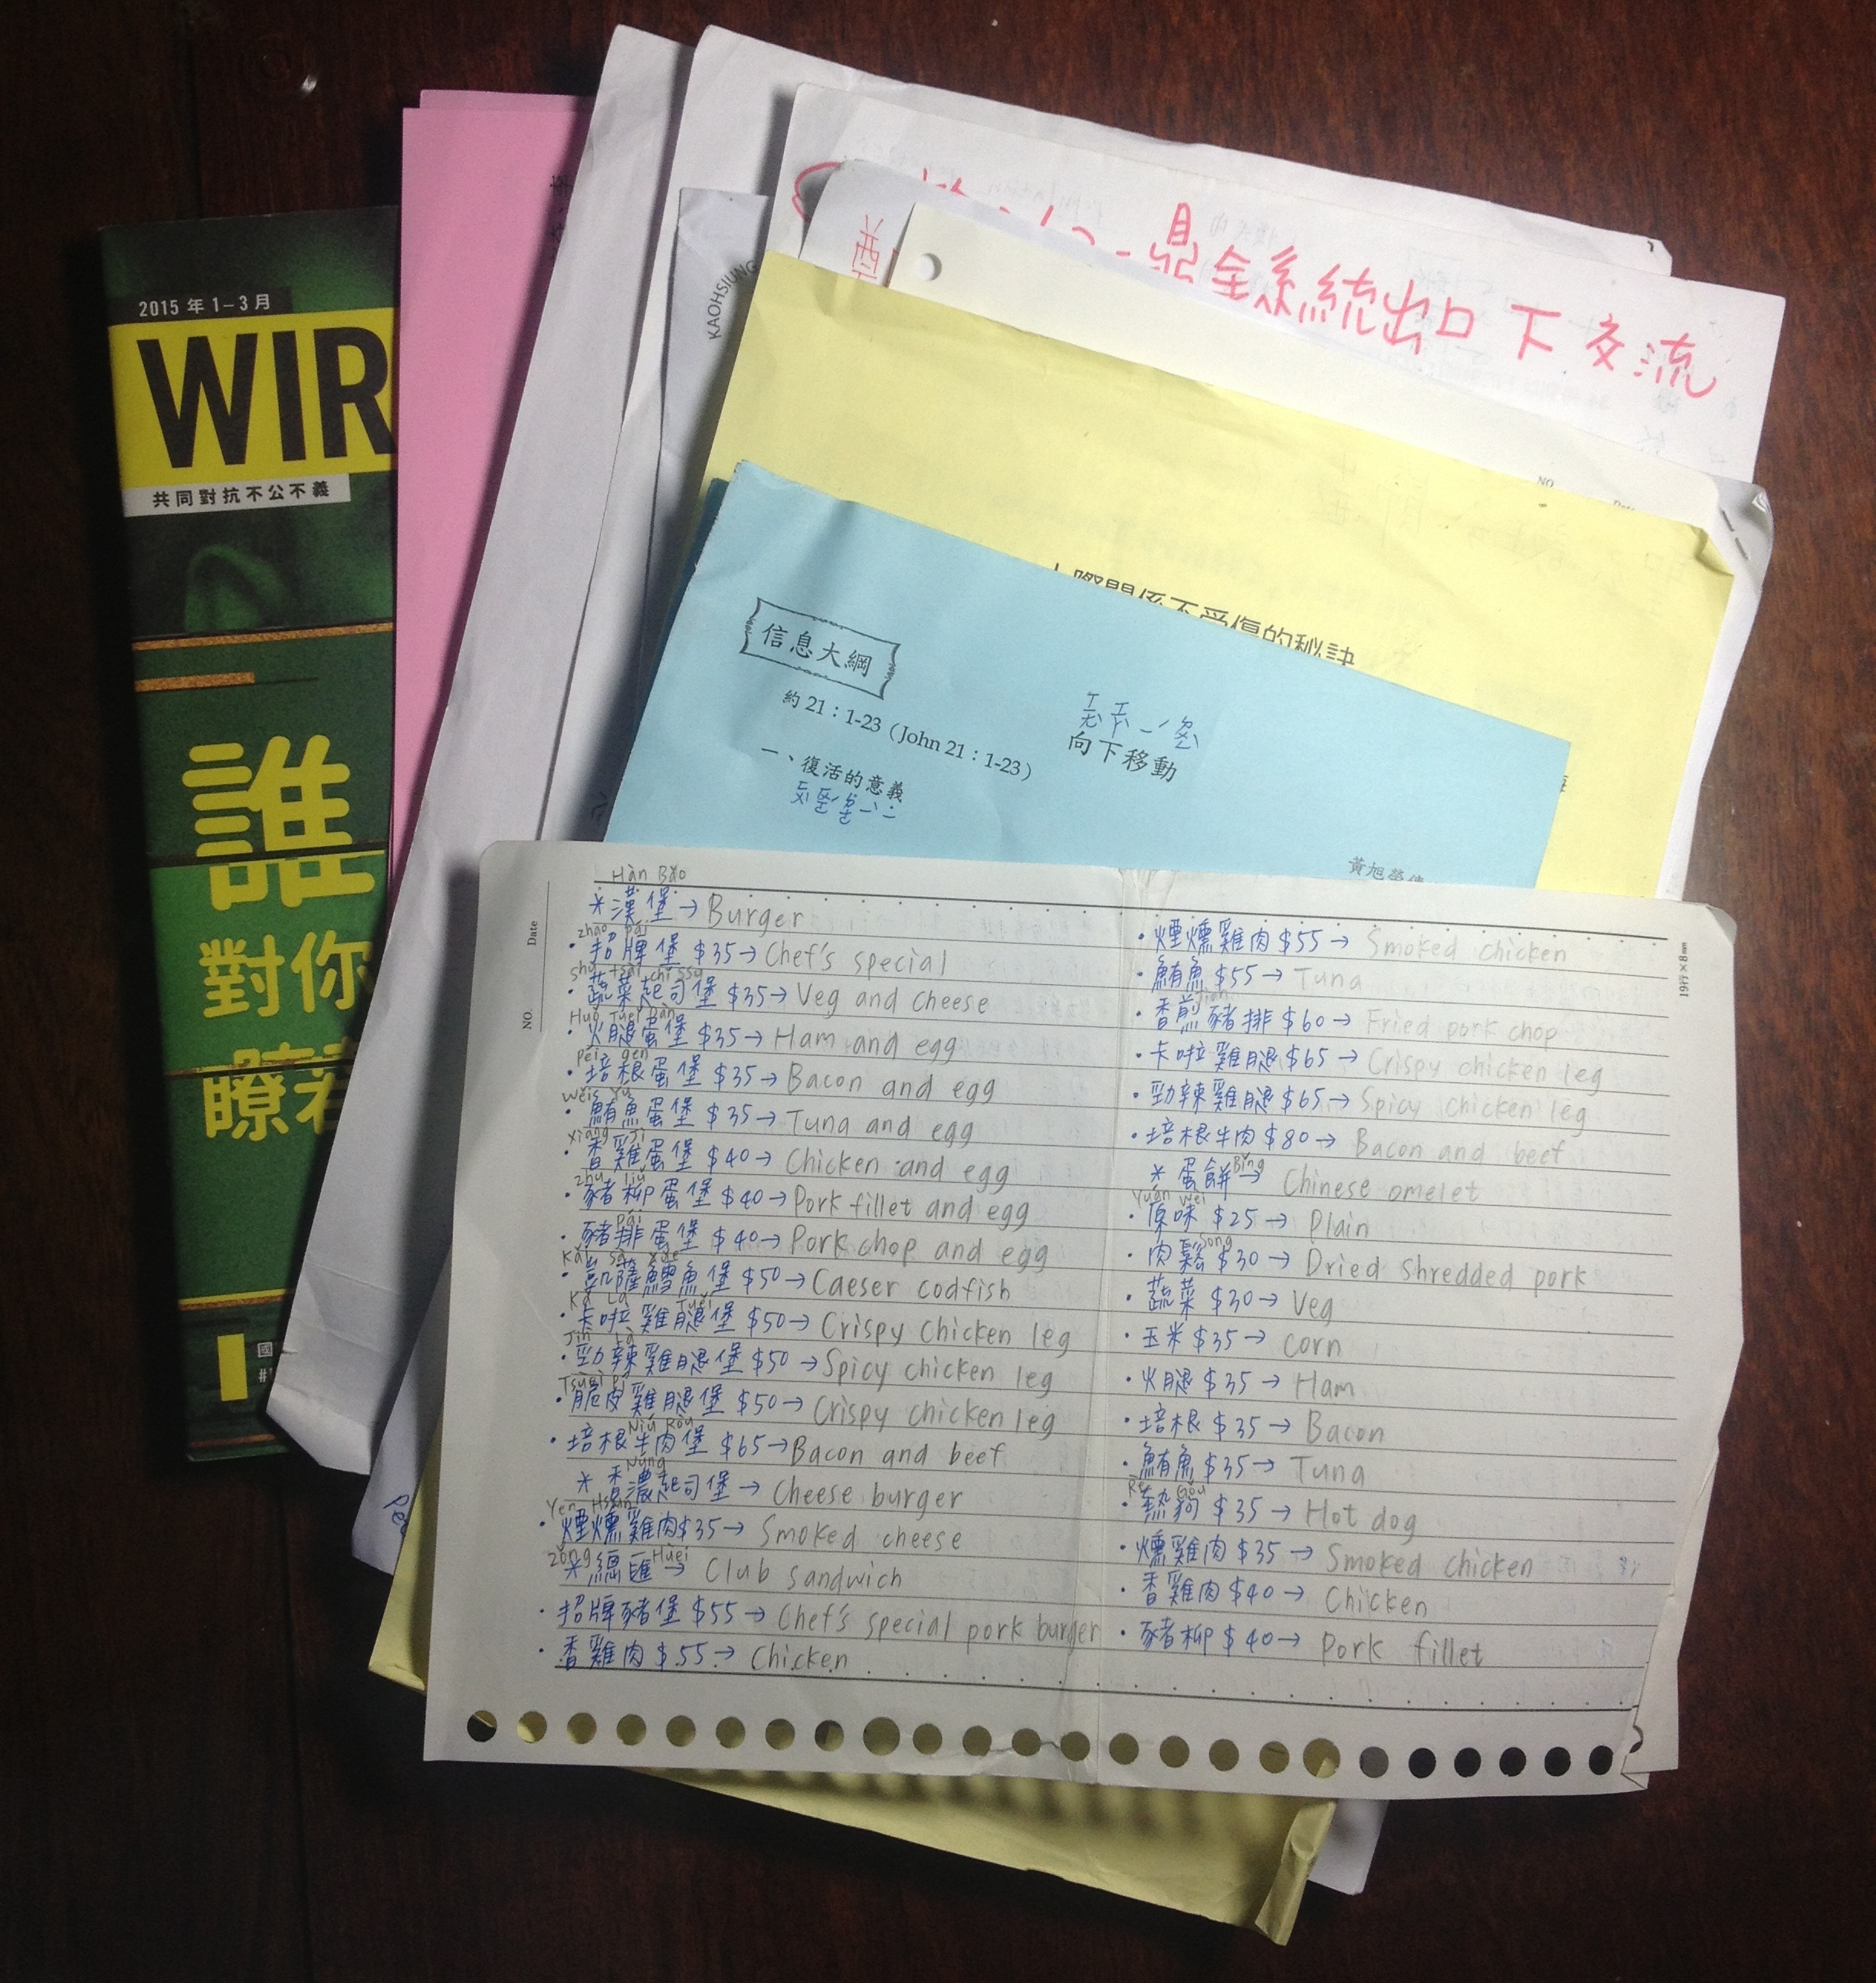 2015 年 1–3 月
WIR
共同對抗不公不義
誰
對你
瞭
國
KAOHSIUNG
鼎金系統出口下交流
NO.
人際關係不受傷的秘訣
信息大綱
約 21：1-23（John 21：1-23）
向下移動
一、復活的意義
黃旭榮
Date
NO.
19行×8mm
Hàn Bǎo
*漢堡→Burger
zhāo pái
・招牌堡 $35→Chef's special
shū tsài chǐ ssū
・蔬菜起司堡 $35→Veg and cheese
Huǒ Tuěi Dàn
・火腿蛋堡 $35→Ham and egg
péi gēn
・培根蛋堡 $35→Bacon and egg
wěi yú
・鮪魚蛋堡 $35→Tuna and egg
xiāng jī
・香雞蛋堡 $40→Chicken and egg
zhū liǔ
・豬柳蛋堡 $40→Pork fillet and egg
pái
・豬排蛋堡 $40→Pork chop and egg
Kǎi sà xuě
・凱薩鱈魚堡 $50→Caeser codfish
Kǎ Lā Tuěi
・卡啦雞腿堡 $50→Crispy chicken leg
Jìn Là
・勁辣雞腿堡 $50→Spicy chicken leg
Tsuèi Pí
・脆皮雞腿堡 $50→Crispy chicken leg
Niú Ròu
・培根牛肉堡 $65→Bacon and beef
Núng
*香濃起司堡→Cheese burger
Yen Hsūn
・煙燻雞肉$35→Smoked cheese
zǒng Hùei
*總匯→Club sandwich
・招牌豬堡 $55→Chef's special pork burger
・香雞肉 $55→Chicken
・煙燻雞肉$55→Smoked chicken
・鮪魚 $55→Tuna
Jiān
・香煎豬排 $60→Fried pork chop
・卡啦雞腿$65→Crispy chicken leg
・勁辣雞腿$65→Spicy chicken leg
・培根牛肉 $80→Bacon and beef
Bǐng
*蛋餅→Chinese omelet
Yuán wèi
・原味 $25→Plain
Sōng
・肉鬆 $30→Dried shredded pork
・蔬菜 $30→Veg
・玉米 $35→corn
・火腿 $35→Ham
・培根 $35→Bacon
・鮪魚 $35→Tuna
Rè Gǒu
・熱狗 $35→Hot dog
・燻雞肉 $35→Smoked chicken
・香雞肉 $40→Chicken
・豬柳 $40→Pork fillet